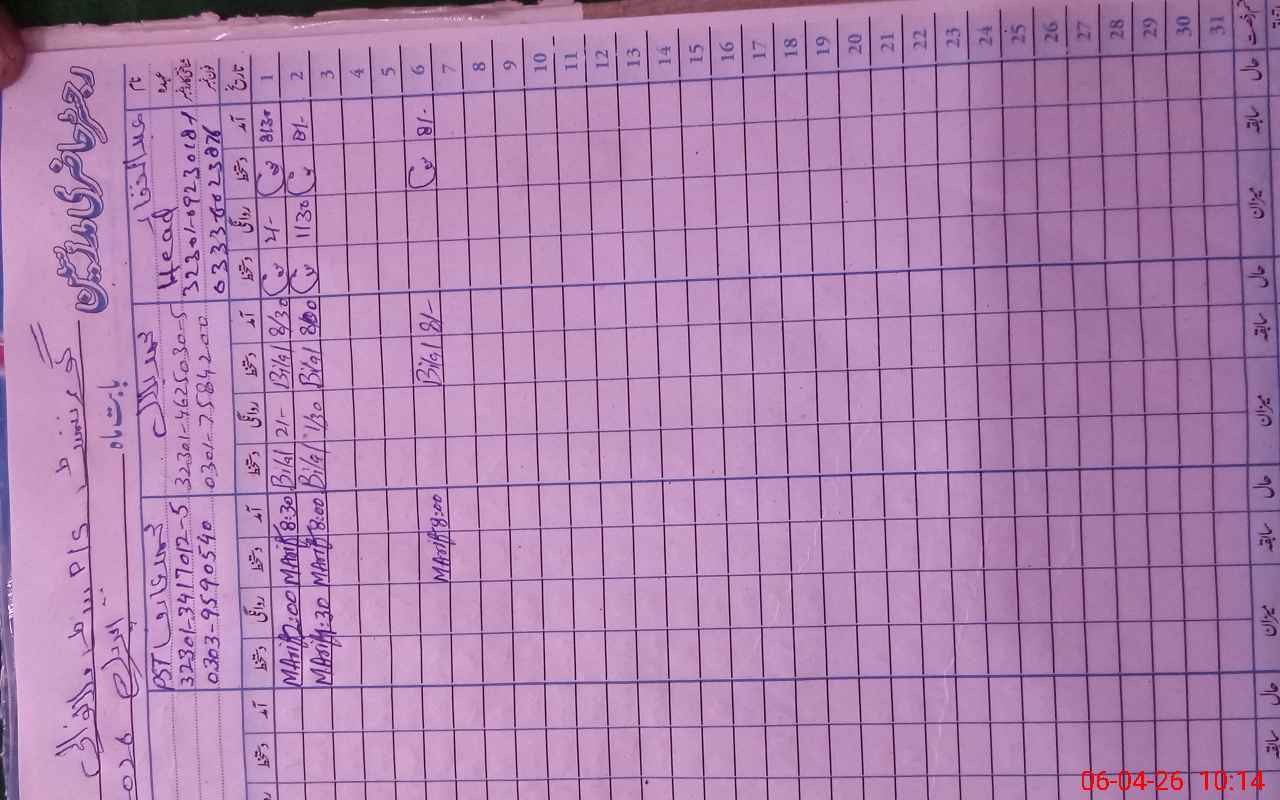 رجسٹر حاضری مدرسین
گورنمنٹ P/S بستی
بابت ماہ اپریل 2026
نام عبدالغفار محمد بلال محمد عارف PST
عہدہ Head
شناختی کارڈ نمبر 32301-0923018-1 32301-4625030-5 32301-3417012-5
فون نمبر 0333-6023876 0301-7584200 0303-9590540
تاریخ آمد دستخط روانگی دستخط آمد دستخط روانگی دستخط آمد دستخط روانگی دستخط آمد دستخط
1 8/30 2/- 8/30 Bilal 2/- Bilal 8:30 MArif 2:00 MArif
2 8/- 1130 8/00 Bilal 1/30 Bilal 8:00 MArif 1:30 MArif
3
4
5
6 8/- 8/- Bilal 8:00 MArif
7
8
9
10
11
12
13
14
15
16
17
18
19
20
21
22
23
24
25
26
27
28
29
30
31
حال سابقہ میزان حال سابقہ میزان حال سابقہ میزان حال سابقہ
06-04-26 10:14